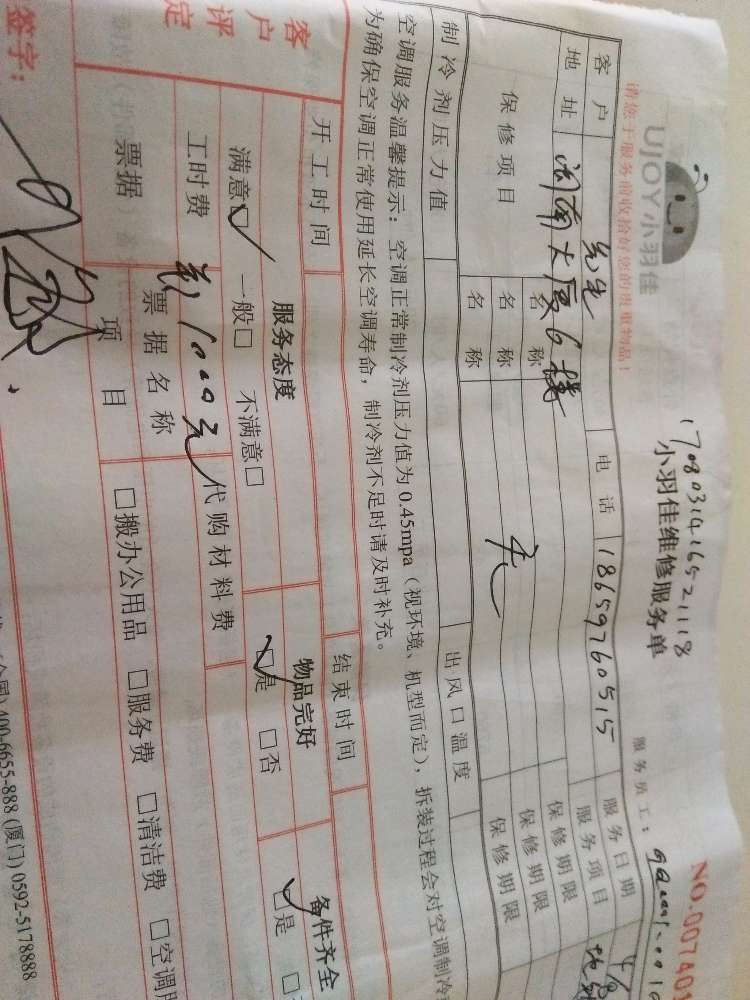 UJOY小羽佳
1708031416521118
小羽佳维修服务单
NO.00740
请您于服务前收拾好您的贵重物品！
服务员工：
客户 先生 电话 18659760515 服务日期
地址 闽南大厦6楼 服务项目
保修项目 名称 无 保修期限
名称 保修期限
名称 保修期限
制冷剂压力值 出风口温度
空调服务温馨提示：空调正常制冷剂压力值为0.45mpa（视环境、机型而定），拆装过程会对空调制冷
为确保空调正常使用延长空调寿命，制冷剂不足时请及时补充。
开工时间 结束时间
客户评定
服务态度 物品完好 备件齐全
满意☑ 一般□ 不满意□ ☑是 □否 ☑是 □
工时费 1000元 代购材料费
票据 票据名称
项目 □搬办公用品 □服务费 □清洁费 □空调
签字：
400-6655-888 (厦门) 0592-5178888